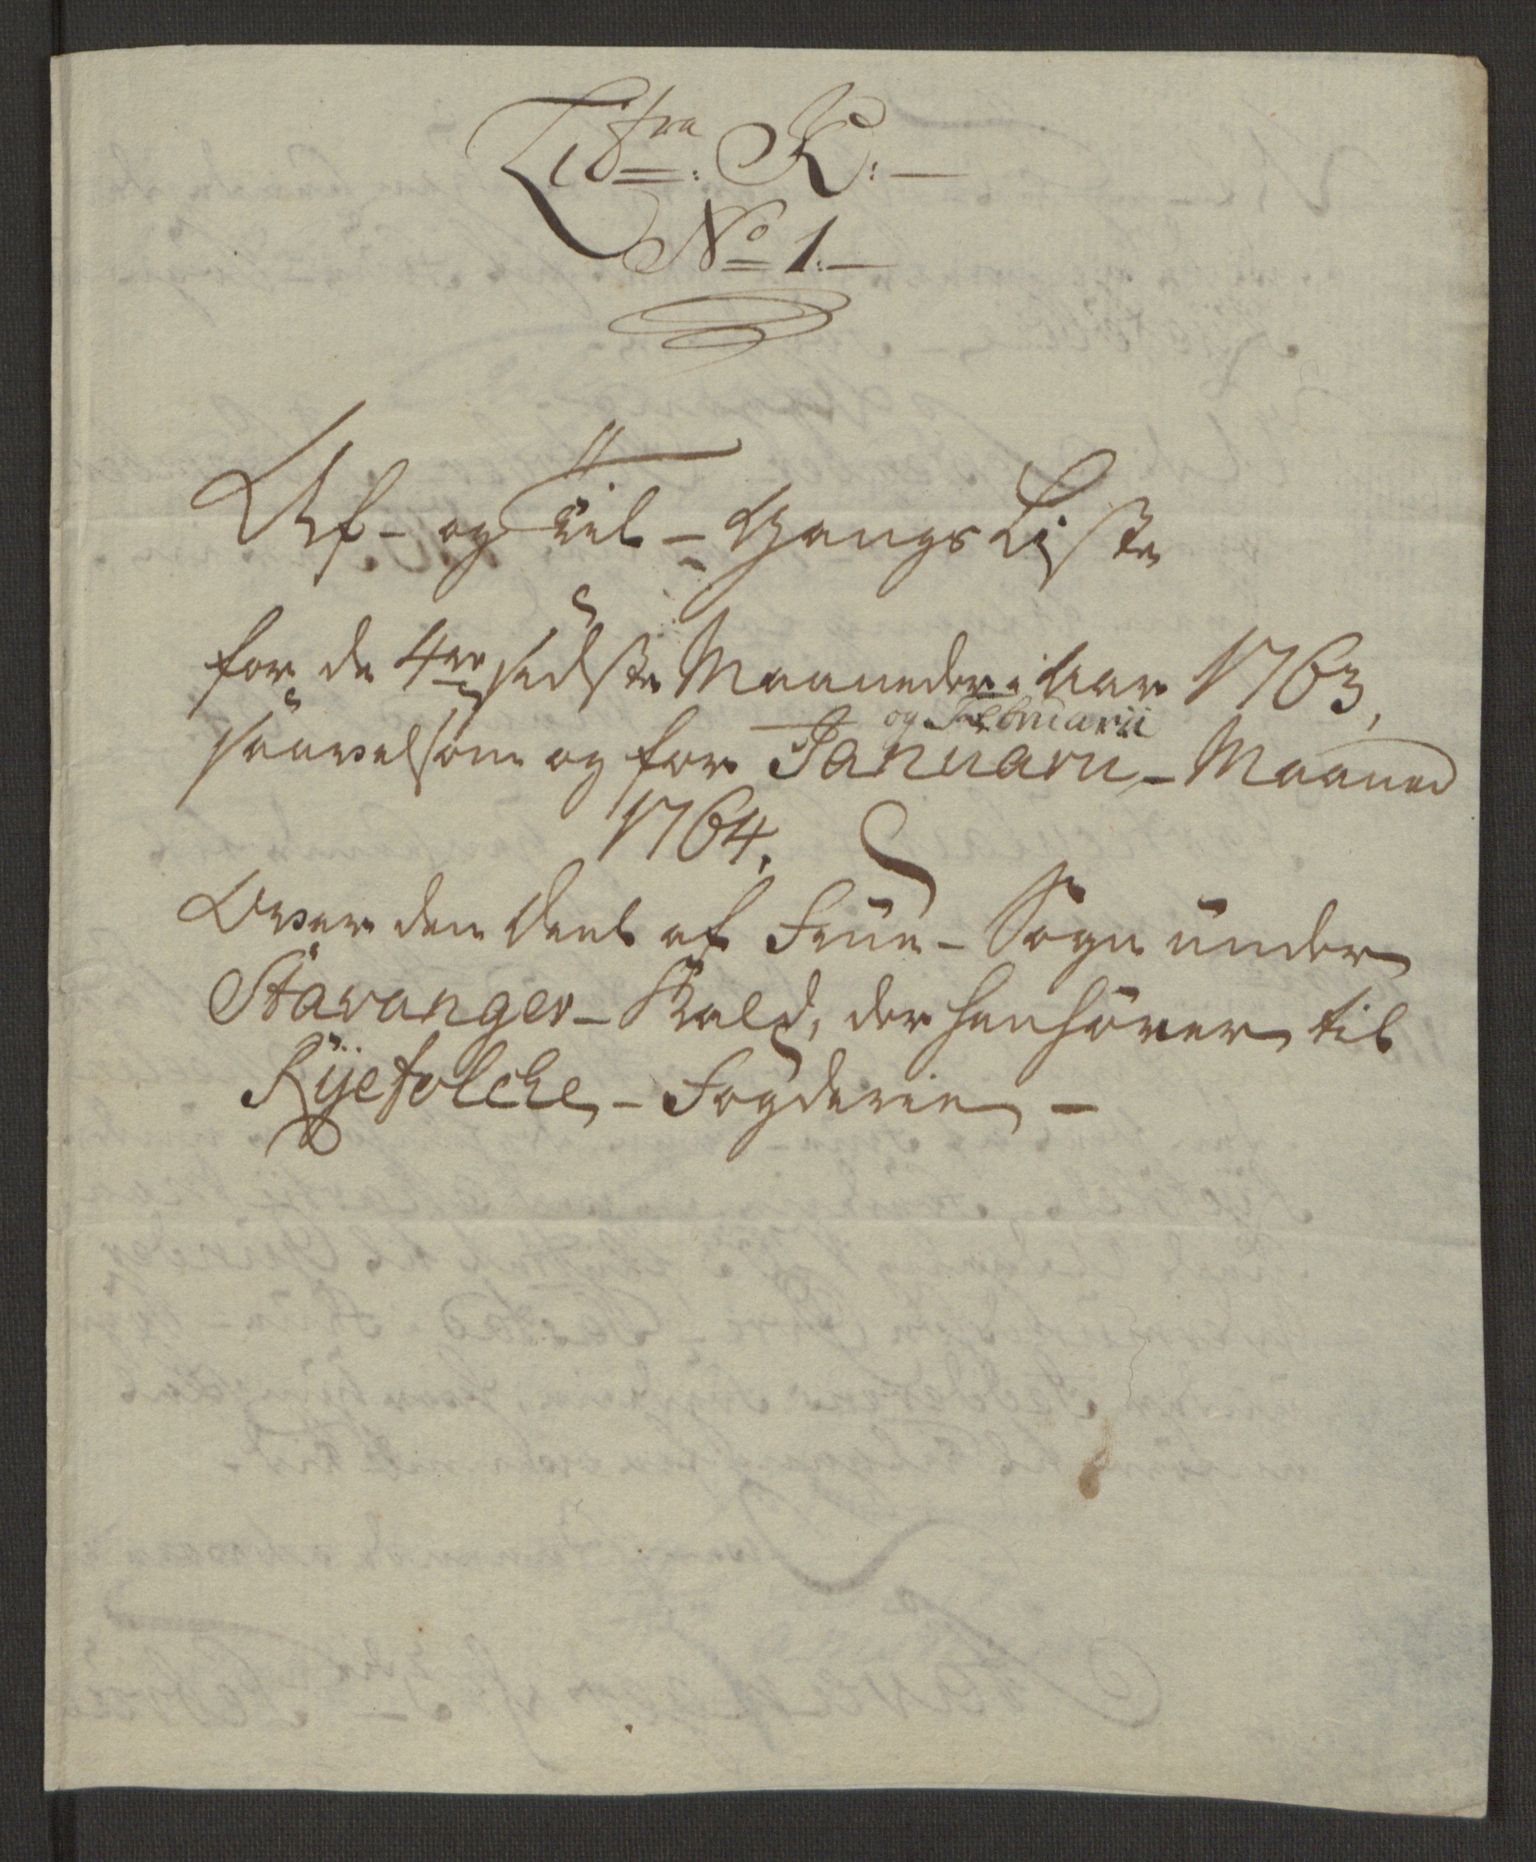 Lit^ra: K:—
No 1.—
Af- og Til-Gangs Liste
for de 4re sidste Maaneder i Aar 1763,
saavelsom og for Januarii og Februarii Maaned
1764.
Over den Deel af Frue-Sogn under
Stavanger-Kald, der henhörer til
Rÿefÿlche-Fogderie —